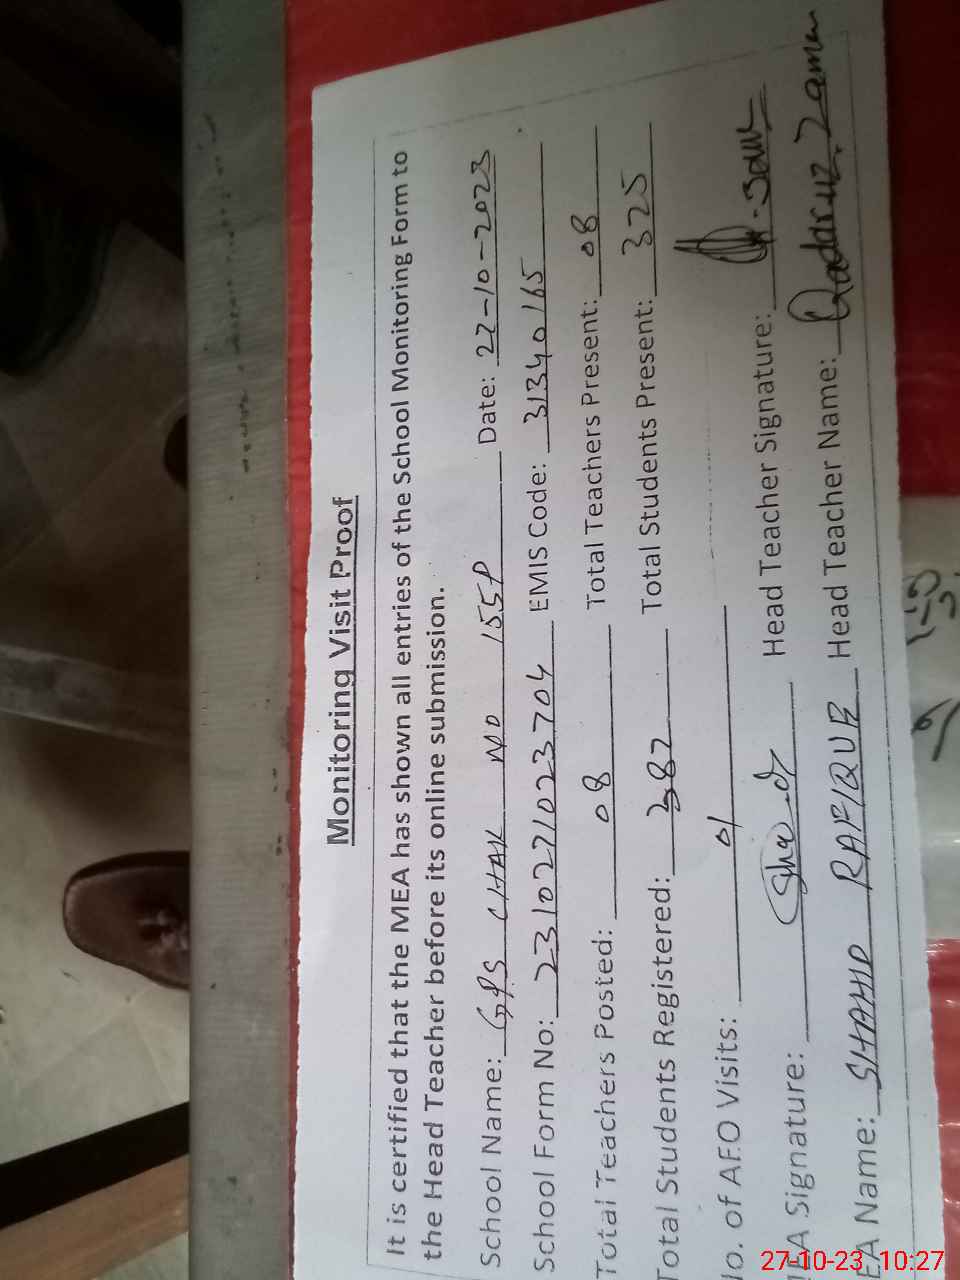 Monitoring Visit Proof
It is certified that the MEA has shown all entries of the School Monitoring Form to
the Head Teacher before its online submission.
School Name: GPS CHAK NO 155P Date: 27-10-2023
School Form No: 2310271023704 EMIS Code: 31340165
Total Teachers Posted: 08 Total Teachers Present: 08
Total Students Registered: 387 Total Students Present: 325
No. of AEO Visits: 01
EA Signature: Head Teacher Signature:
EA Name: SHAHID RAFIQUE Head Teacher Name: Qadar uz Zaman
27-10-23, 10:27